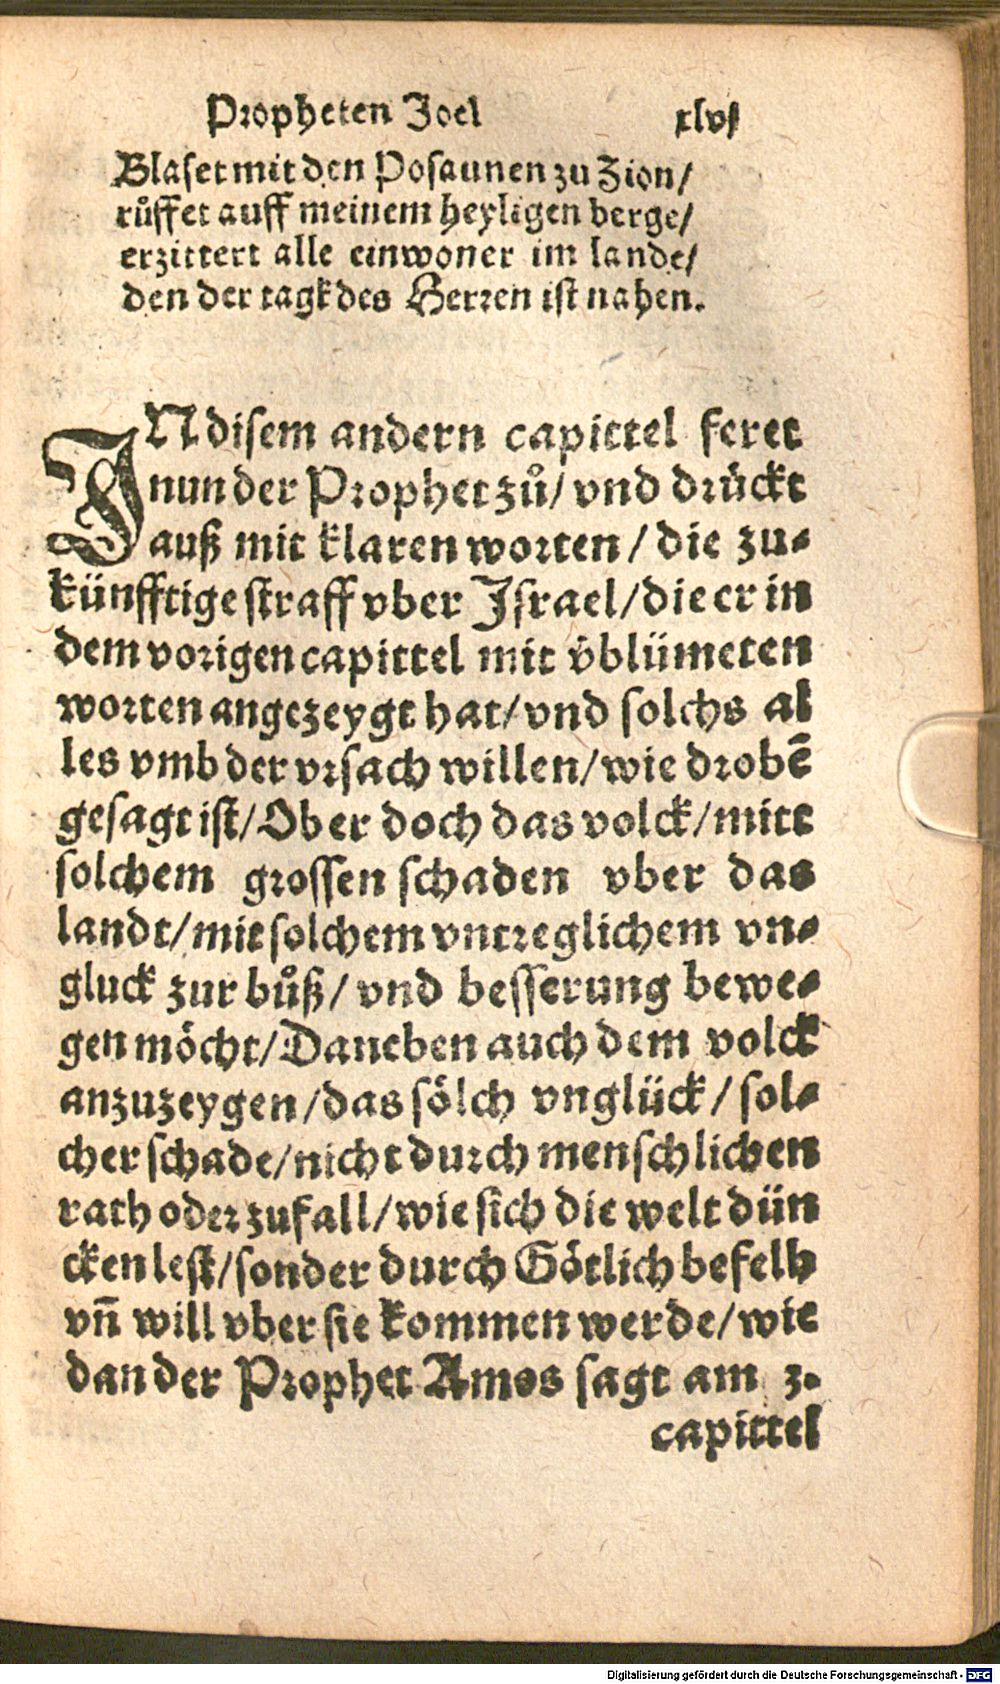 Propheten Joel xlvj
Blaset mit den Posaunen zu Zion/
růffet auff meinem heyligen berge/
erzittert alle einwoner im lande/
den der tagk des Herren ist nahen.
IN disem andern capittel feret
nun der Prophet zů/ vnd drückt
auß mit klaren worten/ die zu-
künfftige straff vber Israel/ die er in
dem vorigen capittel mit v̈blümeten
worten angezeygt hat/ vnd solchs al
les vmb der vrsach willen/ wie drobē
gesagt ist/ Ober doch das volck/ mitt
solchem grossen schaden vber das
landt/ mit solchem vntreglichem vn-
gluck zur bůß/ vnd besserung bewe-
gen möcht/ Daneben auch dem volck
anzuzeygen/ das sölch vnglück/ sol-
cher schade/ nicht durch menschlichen
rath oder zufall/ wie sich die welt dün
cken lest/ sonder durch Götlich befelh
vn̄ will vber sie kommen werde/ wie
dan der Prophet Amos sagt am 3.
capittel
Digitalisierung gefördert durch die Deutsche Forschungsgemeinschaft - DFG